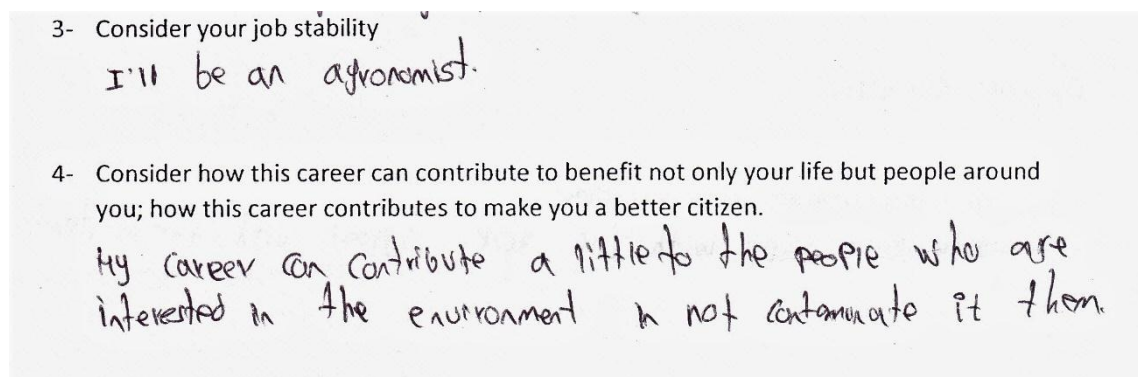 3- Consider your job stability
I'll be an agronomist.
4- Consider how this career can contribute to benefit not only your life but people around
you; how this career contributes to make you a better citizen.
My career can contribute a little to the people who are
interested in the environment in not contaminate it them.